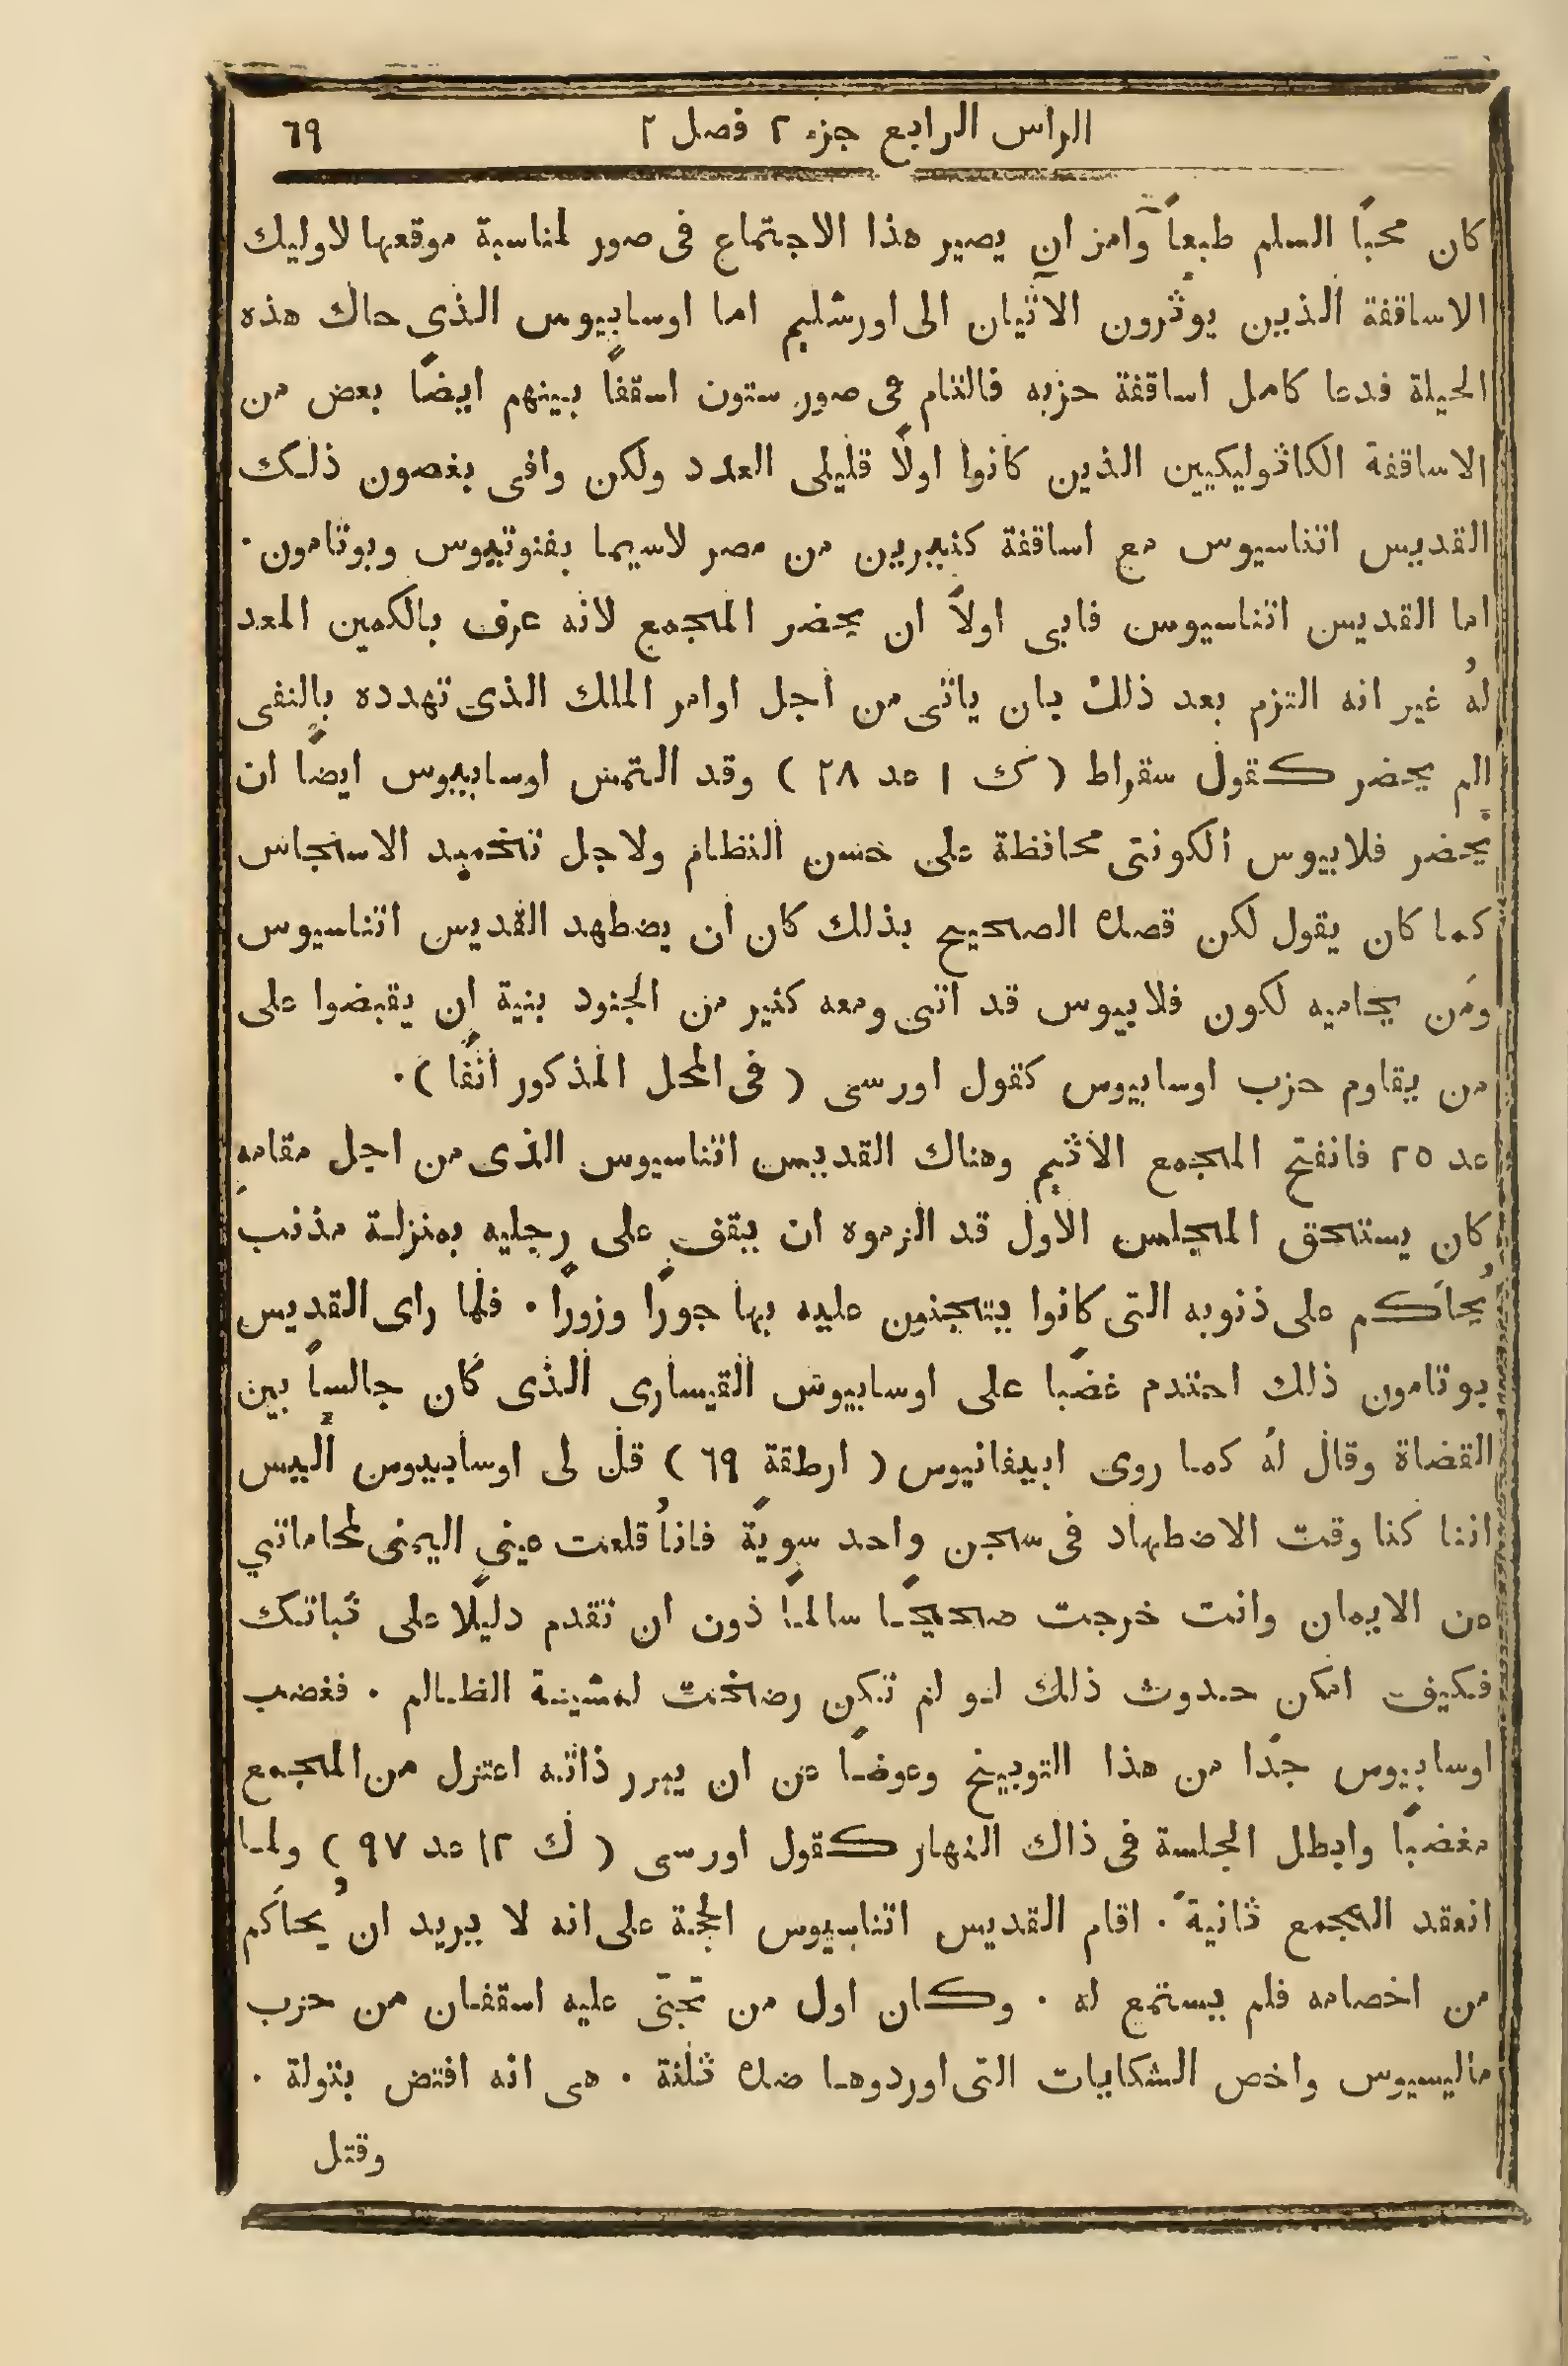 الراس الرابع جزء ٢ فصل ٢ ٦٩
كان محبًا السلم طبعاً وامر ان يصير هذا الاجتماع فى صور لمناسبة موقعها لاوليك
الاساقفة الذين يوثرون الاتيان الى اورشليم اما اوسابيوس الذى حاك هذه
الحيلة فدعا كامل اساقفة حزبه فالتام فى صور ستون اسقفاً بينهم ايضًا بعض من
الاساقفة الكاثوليكيين الذين كانوا اولًا قليلى العدد ولكن وافى بغصون ذلك
القديس اتناسيوس مع اساقفة كثيرين من مصر لاسيما بفنوتيوس وبوتامون ·
اما القديس اتناسيوس فابى اولاً ان يحضر المجمع لانه عرف بالكمين المعد
لهُ غير انه التزم بعد ذلك بان ياتى من اجل اوامر الملك الذى تهدده بالنفى
الم يحضر كقول سقراط ( ك ١ عد ٢٨ ) وقد التمس اوسابيوس ايضًا ان
يحضر فلابيوس الكونتى محافظة على حسن النظام ولاجل تخميد الاسجاس
كما كان يقول لكن قصده الصحيح بذلك كان ان يضطهد القديس اتناسيوس
ومَن يحاميه لكون فلابيوس قد اتى ومعه كثير من الجنود بنية ان يقبضوا على
من يقاوم حزب اوسابيوس كقول اورسى ( فى المحل المذكور انفًا ) ·
عد ٢٥ فانفتح المجمع الاثيم وهناك القديس اتناسيوس الذى من اجل مقامهِ
كان يستحق المجلس الاول قد الزموه ان يقف على رجليه بمنزلة مذنب
يُحاكم على ذنوبه التى كانوا يتجنون عليه بها جورًا وزورًا · فلما راى القديس
بوتامون ذلك احتدم غضبًا على اوسابيوس القيسارى الذى كان جالساً بين
القضاة وقال لهُ كما روى ابيفانيوس ( ارطقة ٦٩ ) قل لى اوسابيوس أَليس
اننا كنا وقت الاضطهاد فى سجن واحد سويةً فاناُ قلعت عينى اليمنى لمحاماتي
عن الايمان وانت خرجت صحيحًا سالماً دون ان تقدم دليلًا على ثباتك
فكيف امكن حدوث ذلك لو لم تكن رضخت لمشيئة الظالم · فغضب
اوسابيوس جدًا من هذا التوبيخ وعوضًا عن ان يبرر ذاته اعتزل من المجمع
مغضبًا وابطل الجلسة فى ذاك النهار كقول اورسى ( ك ١٢ عد ٩٧ ) ولما
انعقد المجمع ثانيةً · اقام القديس اتناسيوس الحجة على انه لا يريد ان يُحاكَم
من اخصامه فلم يستمع له · وكان اول من تجنّى عليه اسقفان من حزب
ماليسيوس واخص الشكايات التى اوردوها ضده ثلثة · هى انه افتض بتولة ·
وقتل